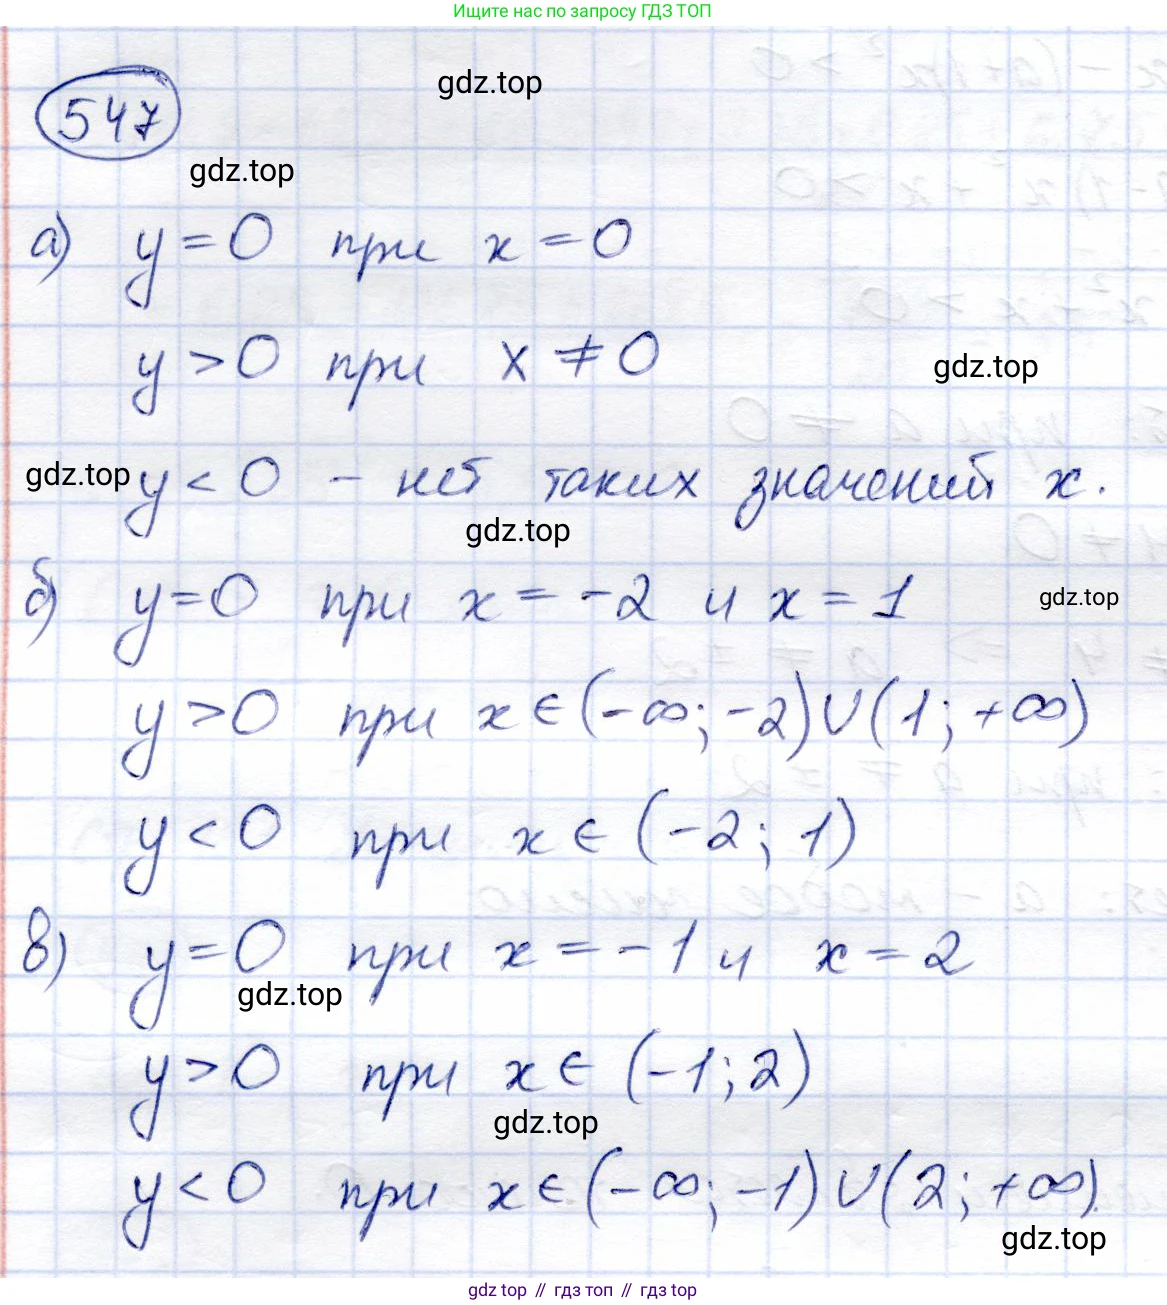 Ищите нас по запросу ГДЗ ТОП
gdz.top
547
gdz.top
а) y = 0 при x = 0
y > 0 при x ≠ 0
gdz.top
gdz.top
y < 0 – нет таких значений x.
gdz.top
б) y = 0 при x = -2 и x = 1
gdz.top
y > 0 при x ∈ (-∞; -2) ∪ (1; +∞)
y < 0 при x ∈ (-2; 1)
в) y = 0 при x = -1 и x = 2
gdz.top
y > 0 при x ∈ (-1; 2)
gdz.top
y < 0 при x ∈ (-∞; -1) ∪ (2; +∞).
gdz.top
gdz top // гдз топ // гдз top